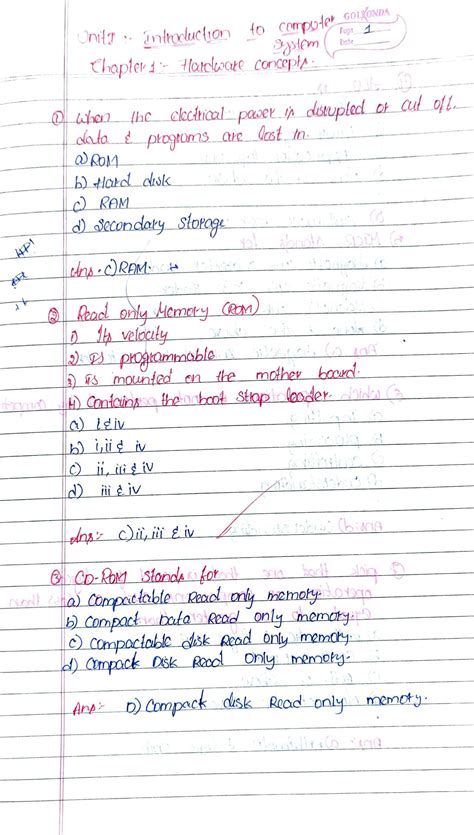 Unit 1 :- Introduction to computer
System
GOLKONDA
Page 1
Date
Chapter 1 :- Hardware concepts.
① When the electrical power is disrupted or cut off.
data & programs are lost in.
a) ROM
b) Hard disk
c) RAM
d) Secondary Storage
Ans. c) RAM.
② Read only Memory (ROM)
1) Its velocity
2) is programmable
3) is mounted on the mother board.
4) Contains the boot strap loader.
a) i & iv
b) i, ii & iv
c) ii, iii & iv
d) iii & iv
Ans:- c) ii, iii & iv
③ CD-ROM stands for
a) Compactable Read only memory.
b) Compact Data Read only memory.
c) Compactable disk Read only memory.
d) Compack Disk Read only memory.
Ans:- D) Compack disk Read only memory.